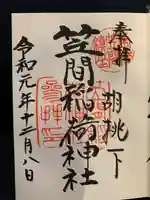 奉拝
胡桃下
笠間稲荷神社
令和元年十二月八日